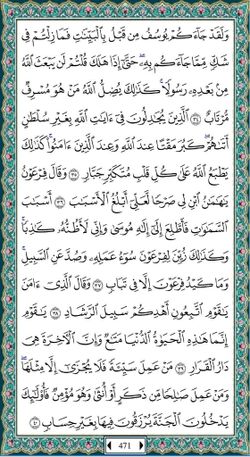 وَلَقَدْ جَاءَكُمْ يُوسُفُ مِن قَبْلُ بِالْبَيِّنَاتِ فَمَا زِلْتُمْ فِي
شَكٍّ مِّمَّا جَاءَكُم بِهِ ۖ حَتَّىٰ إِذَا هَلَكَ قُلْتُمْ لَن يَبْعَثَ اللَّهُ
مِن بَعْدِهِ رَسُولًا ۚ كَذَٰلِكَ يُضِلُّ اللَّهُ مَنْ هُوَ مُسْرِفٌ
مُّرْتَابٌ ٣٤ الَّذِينَ يُجَادِلُونَ فِي آيَاتِ اللَّهِ بِغَيْرِ سُلْطَانٍ
أَتَاهُمْ ۖ كَبُرَ مَقْتًا عِندَ اللَّهِ وَعِندَ الَّذِينَ آمَنُوا ۚ كَذَٰلِكَ
يَطْبَعُ اللَّهُ عَلَىٰ كُلِّ قَلْبِ مُتَكَبِّرٍ جَبَّارٍ ٣٥ وَقَالَ فِرْعَوْنُ
يَا هَامَانُ ابْنِ لِي صَرْحًا لَّعَلِّي أَبْلُغُ الْأَسْبَابَ ٣٦ أَسْبَابَ
السَّمَاوَاتِ فَأَطَّلِعَ إِلَىٰ إِلَٰهِ مُوسَىٰ وَإِنِّي لَأَظُنُّهُ كَاذِبًا ۚ
وَكَذَٰلِكَ زُيِّنَ لِفِرْعَوْنَ سُوءُ عَمَلِهِ وَصُدَّ عَنِ السَّبِيلِ ۚ
وَمَا كَيْدُ فِرْعَوْنَ إِلَّا فِي تَبَابٍ ٣٧ وَقَالَ الَّذِي آمَنَ
يَا قَوْمِ اتَّبِعُونِ أَهْدِكُمْ سَبِيلَ الرَّشَادِ ٣٨ يَا قَوْمِ
إِنَّمَا هَٰذِهِ الْحَيَاةُ الدُّنْيَا مَتَاعٌ وَإِنَّ الْآخِرَةَ هِيَ
دَارُ الْقَرَارِ ٣٩ مَنْ عَمِلَ سَيِّئَةً فَلَا يُجْزَىٰ إِلَّا مِثْلَهَا ۖ
وَمَنْ عَمِلَ صَالِحًا مِّن ذَكَرٍ أَوْ أُنثَىٰ وَهُوَ مُؤْمِنٌ فَأُولَٰئِكَ
يَدْخُلُونَ الْجَنَّةَ يُرْزَقُونَ فِيهَا بِغَيْرِ حِسَابٍ ٤٠
471